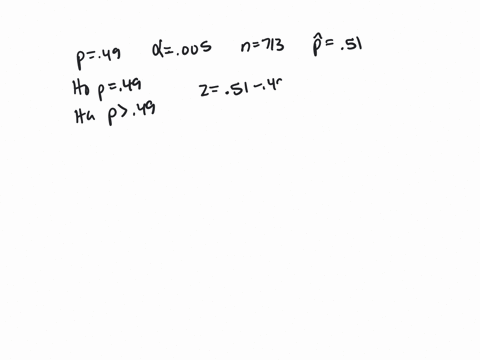 p=.49 α=.005 n=713 p̂=.51
Ho p=.49 z=.51-.4
Ha p>.49